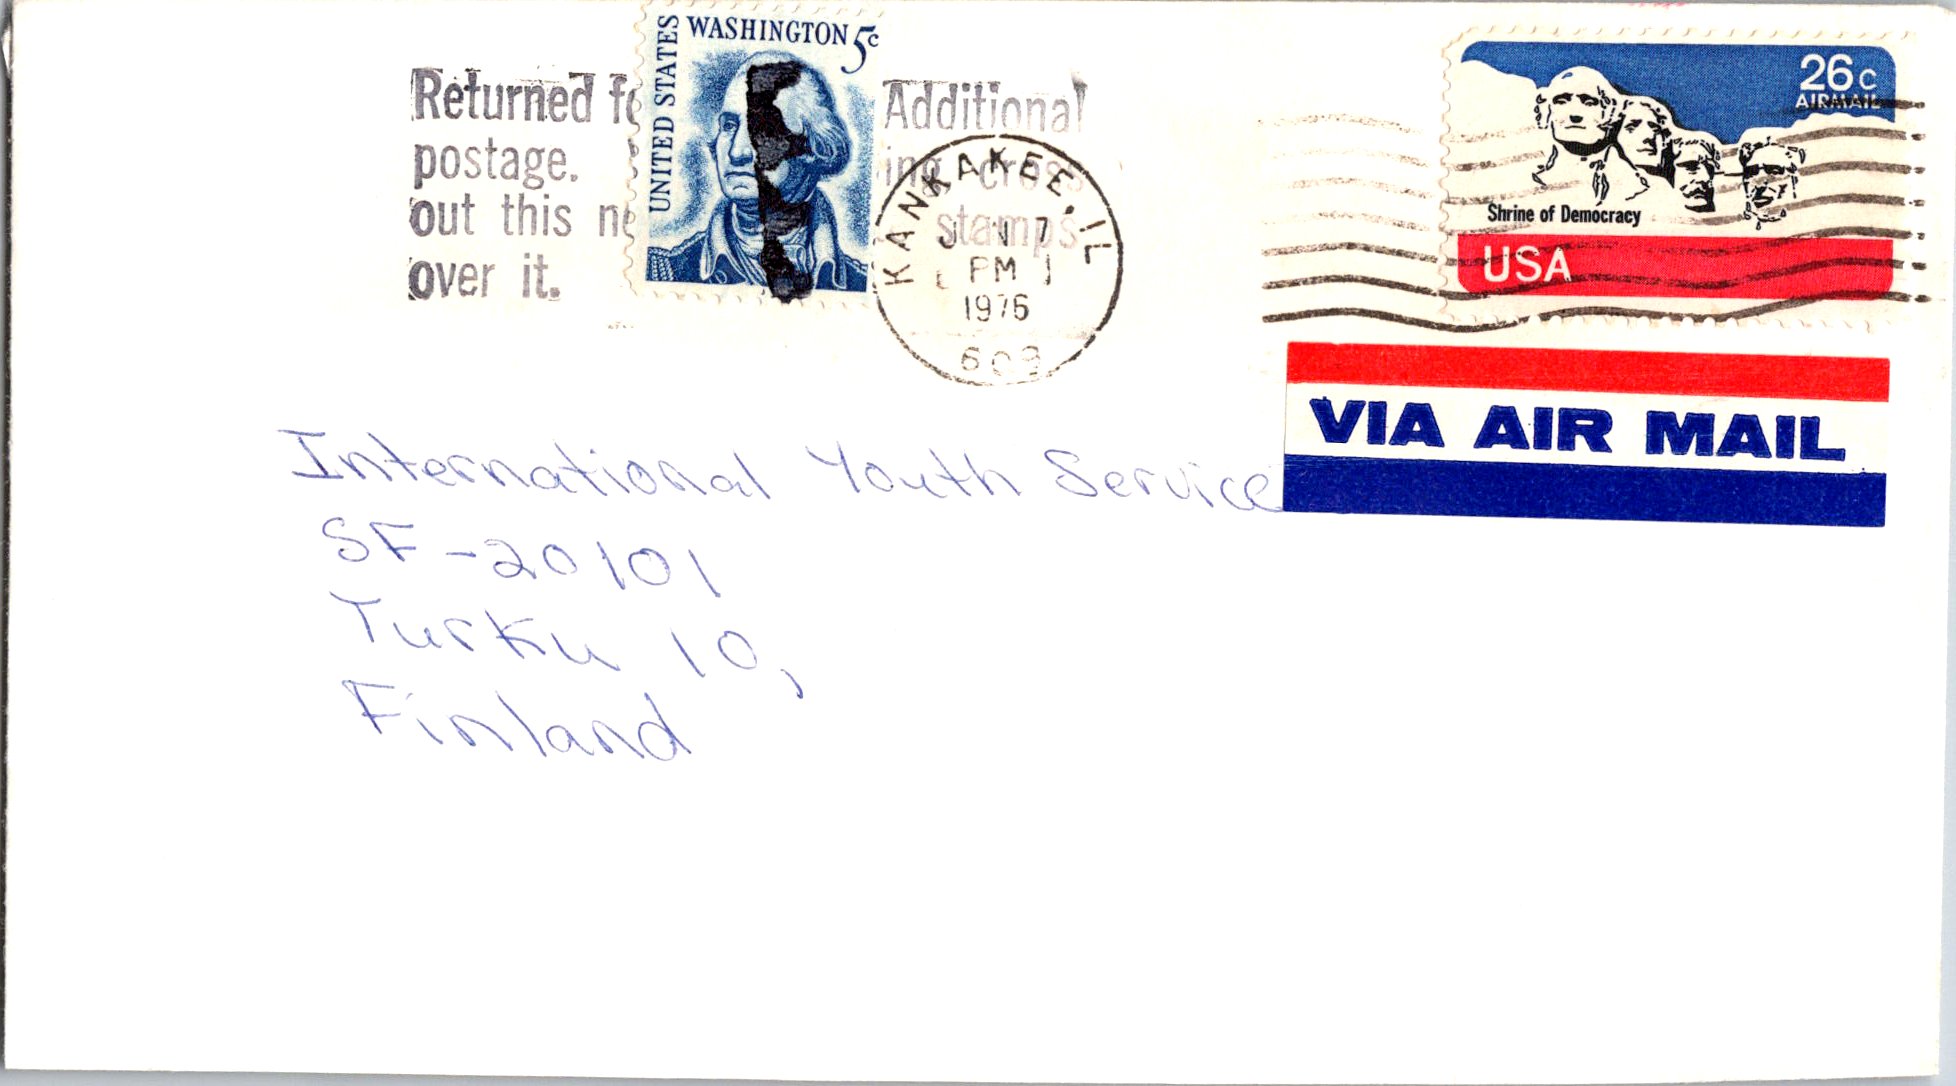 Returned Additional
postage. ing cross
out this stamps
over it.
UNITED STATES
WASHINGTON 5c
KANKAKEE, IL
PM
1976
26c
AIRMAIL
Shrine of Democracy
USA
VIA AIR MAIL
International Youth Service
SF-20101
Turku 10,
Finland